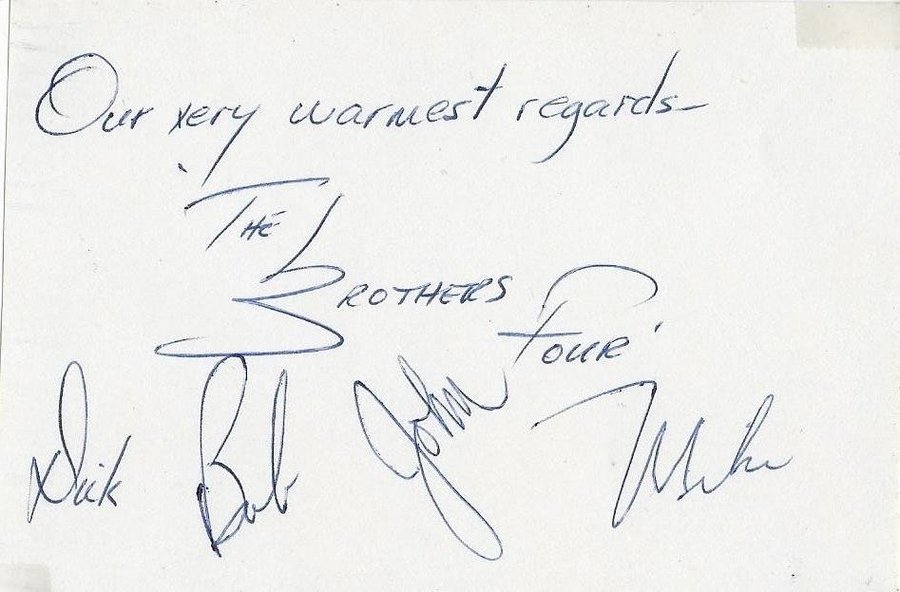 Our very warmest regards-
'The
Brothers
Four'
Dick Bob John Mike